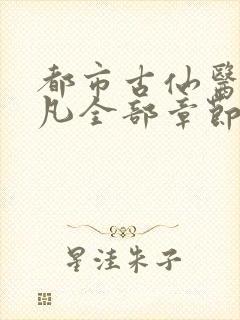 都市古仙醫
凡全部章節
星洼朱子